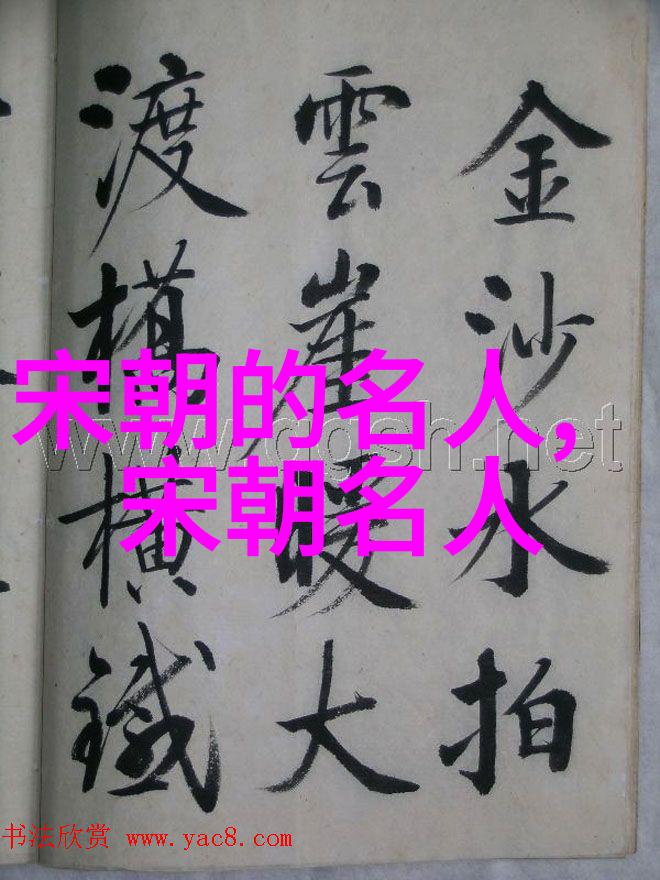 金沙水拍
雲崖暖大
渡橋横鐵
宋朝的名人,
宋朝名人
书法欣赏 www.yac8.com